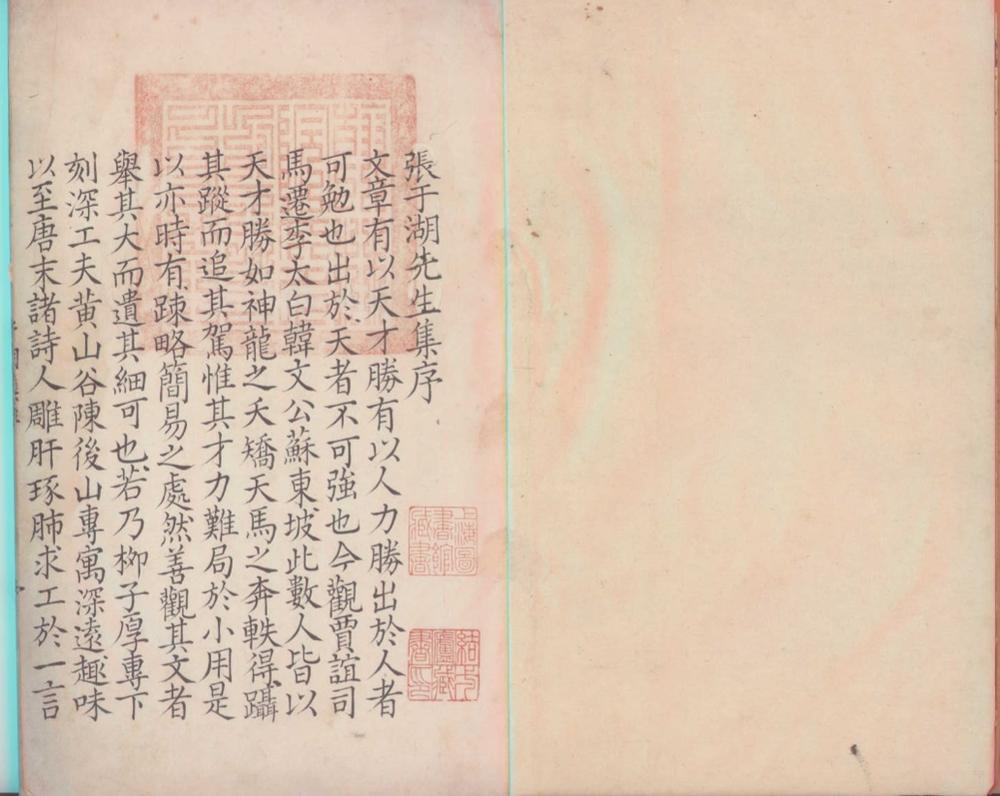 張于湖先生集序
文章有以天才勝有以人力勝出於人者
可勉也出於天者不可強也今觀賈誼司
馬遷李太白韓文公蘇東坡此數人皆以
天才勝如神龍之夭矯天馬之奔軼得躡
其蹤而追其駕惟其才力難局於小用是
以亦時有踈略簡易之處然善觀其文者
舉其大而遺其細可也若乃柳子厚專下
刻深工夫黃山谷陳後山專寓深遠趣味
以至唐末諸詩人雕肝琢肺求工於一言
上海圖
書館
藏書